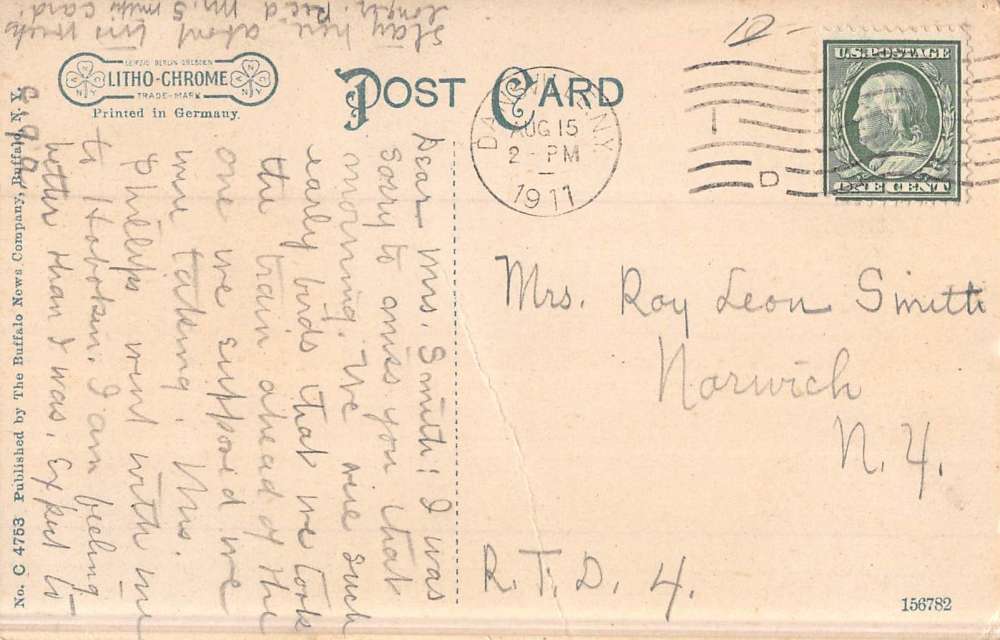 LEIPZIG BERLIN DRESDEN
LITHO-CHROME
TRADE-MARK
Printed in Germany.
POST CARD
AUG 15
2 - PM
1911
D
U.S. POSTAGE
ONE CENT
Mrs. Roy Leon Smith
Norwich
N.Y.
R.F.D. 4.
156782
No. C 4753 Published by The Buffalo News Company, Buffalo, N.Y.
Dear Mrs. Smith: I was
sorry to miss you that
morning. We were such
early birds that we took
the train ahead of the
one we supposed we
were taking. Mrs.
Phillips went with me
to Hoboken. I am feeling
better than I was. Expect to
stay here about two weeks
longer. Rec'd Mr. Smith's card.